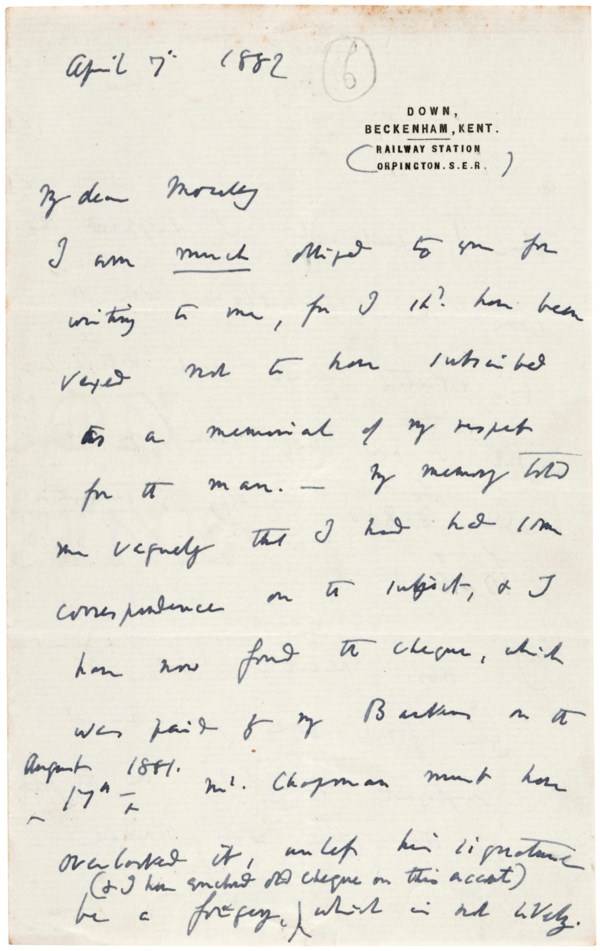 April 7th 1882
6
DOWN,
BECKENHAM, KENT.
(RAILWAY STATION
ORPINGTON. S.E.R.)
My dear Moseley
I am much obliged to you for
writing to me, for I shd. have been
vexed not to have subscribed
as a memorial of my respect
for the man. — My memory told
me vaguely that I had had some
correspondence on the subject, & I
have now found the cheque, which
was paid by my Bankers on the
August 1881.
17th Mr. Chapman must have
overlooked it, unless his signature
(& I have enclosed old cheque on this account)
be a forgery, which is not likely.